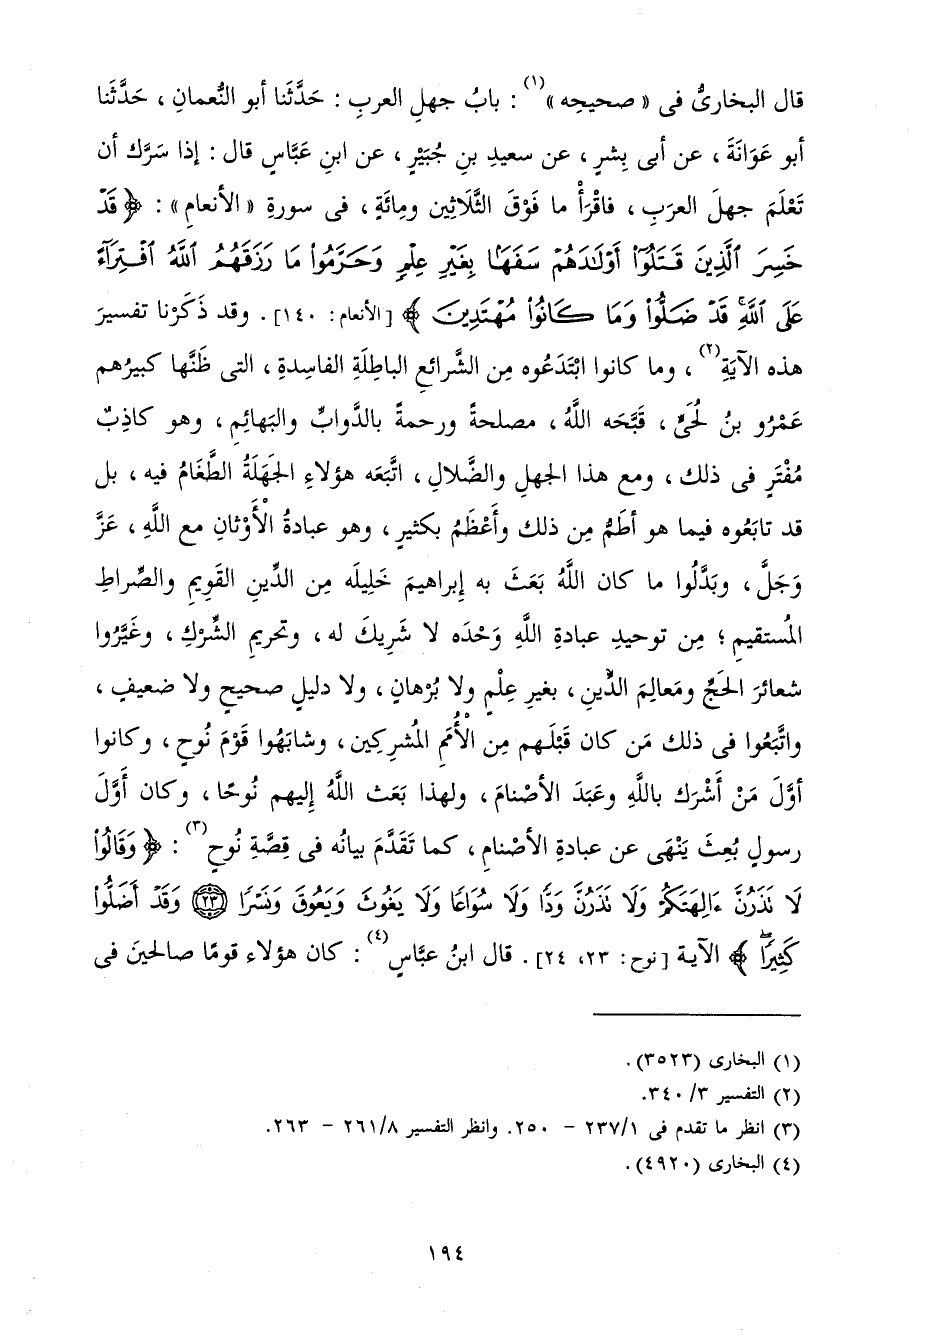 قال البخارىُّ فى « صحيحِه »(١) : بابُ جهلِ العربِ : حَدَّثَنا أبو النُّعمانِ ، حَدَّثَنا
أبو عَوَانَةَ ، عن أبى بِشرٍ ، عن سعيدِ بنِ جُبَيْرٍ ، عن ابنِ عَبَّاسٍ قال : إذا سَرَّك أن
تَعْلَمَ جهلَ العرَبِ ، فاقْرَأْ ما فَوْقَ الثَّلَاثِين ومِائَةٍ ، فى سورةِ « الأنعامِ » : ﴿ قَدْ
خَسِرَ ٱلَّذِينَ قَتَلُوٓا۟ أَوْلَـٰدَهُمْ سَفَهًۢا بِغَيْرِ عِلْمٍ وَحَرَّمُوا۟ مَا رَزَقَهُمُ ٱللَّهُ ٱفْتِرَآءً
عَلَى ٱللَّهِ ۚ قَدْ ضَلُّوا۟ وَمَا كَانُوا۟ مُهْتَدِينَ ﴾ [الأنعام: ١٤٠] . وقد ذَكَرْنا تفسيرَ
هذه الآيَةِ(٢) ، وما كانوا ابْتَدَعُوه مِن الشَّرائعِ الباطِلةِ الفاسدةِ ، التى ظَنَّها كبيرُهم
عَمْرُو بنُ لُحَىٍّ ، قَبَّحَه اللَّهُ ، مصلحةً ورحمةً بالدَّوابِّ والبَهائمِ ، وهو كاذِبٌ
مُفْتَرٍ فى ذلك ، ومع هذا الجهلِ والضَّلالِ ، اتَّبَعَه هؤلاءِ الجَهَلَةُ الطَّغَامُ فيه ، بل
قد تابَعُوه فيما هو أطَمُّ مِن ذلك وأَعْظَمُ بكثيرٍ ، وهو عبادةُ الأَوْثانِ مع اللَّهِ ، عَزَّ
وَجَلَّ ، وبَدَّلُوا ما كان اللَّهُ بَعَثَ به إبراهيمَ خَلِيلَه مِن الدِّينِ القَوِيمِ والصِّراطِ
المُستقيمِ ؛ مِن توحيدِ عبادةِ اللَّهِ وَحْدَه لا شَرِيكَ له ، وتحريمِ الشِّرْكِ ، وغَيَّرُوا
شعائرَ الحَجِّ ومَعالِمَ الدِّينِ ، بغيرِ عِلْمٍ ولا بُرْهانٍ ، ولا دليلٍ صحيحٍ ولا ضعيفٍ ،
واتَّبَعُوا فى ذلك مَن كان قَبْلَهم مِن الأُمَمِ المُشرِكِين ، وشابَهُوا قَوْمَ نُوحٍ ، وكانوا
أوَّلَ مَنْ أَشْرَك باللَّهِ وعَبَدَ الأصْنامَ ، ولهذا بَعَث اللَّهُ إليهم نُوحًا ، وكان أَوَّلَ
رسولٍ بُعِثَ يَنْهَى عن عبادةِ الأصْنامِ ، كما تَقَدَّمَ بيانُه فى قِصَّةِ نُوحٍ(٣) : ﴿ وَقَالُوا۟
لَا تَذَرُنَّ ءَالِهَتَكُمْ وَلَا تَذَرُنَّ وَدًّا وَلَا سُوَاعًا وَلَا يَغُوثَ وَيَعُوقَ وَنَسْرًا ﴿٢٣﴾ وَقَدْ أَضَلُّوا۟
كَثِيرًا ۖ ﴾ الآية [نوح: ٢٣، ٢٤] . قال ابنُ عبَّاسٍ(٤) : كان هؤلاء قومًا صالحينَ فى
(١) البخارى (٣٥٢٣) .
(٢) التفسير ٣/ ٣٤٠.
(٣) انظر ما تقدم فى ١/ ٢٣٧ - ٢٥٠. وانظر التفسير ٨/ ٢٦١ - ٢٦٣.
(٤) البخارى (٤٩٢٠) .
١٩٤